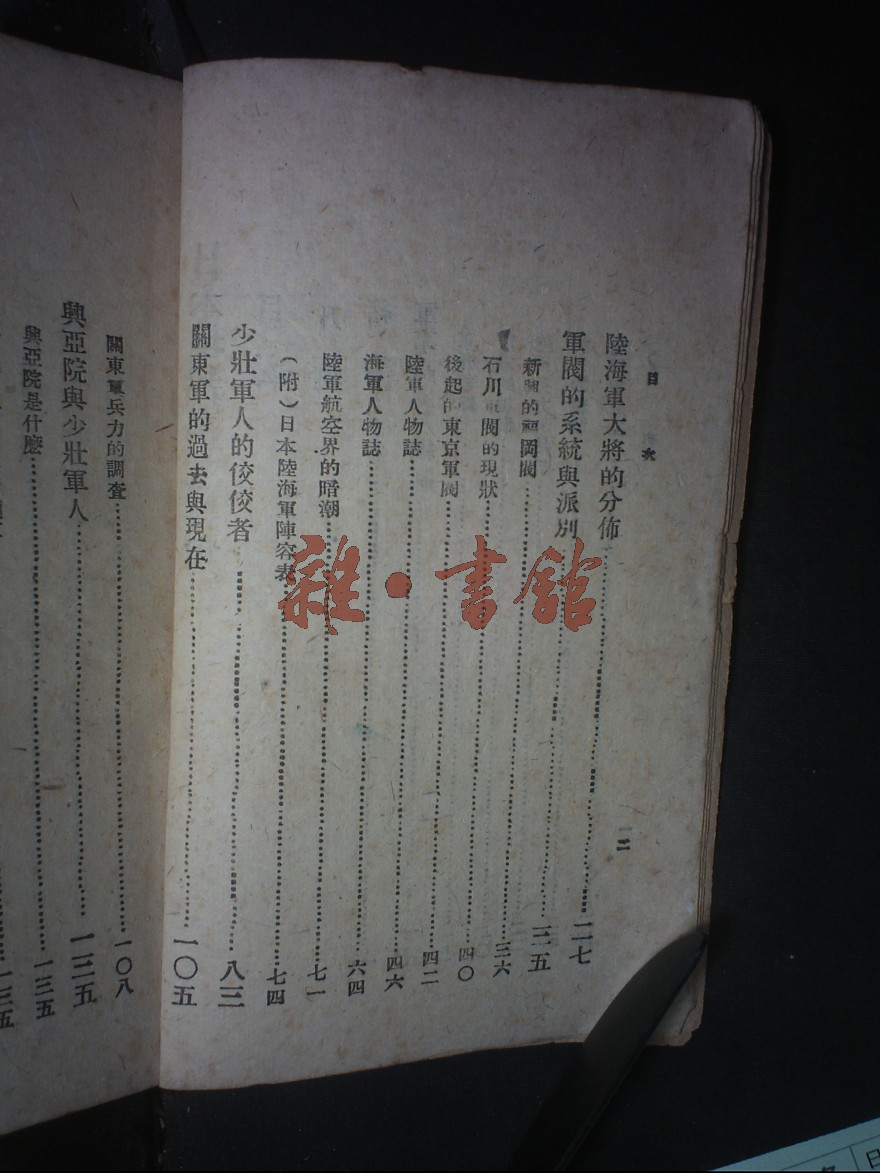 目次
二
陸海軍大將的分佈……二七
軍閥的系統與派別……三五
新興的福岡閥……三六
石川軍閥的現狀……四〇
後起的東京軍閥……四二
陸軍人物誌……四六
海軍人物誌……六四
陸軍航空界的暗潮……七一
(附)日本陸海軍陣容表……七四
少壯軍人的佼佼者……八三
關東軍的過去與現在……一〇五
關東軍兵力的調查……一〇八
興亞院與少壯軍人……一三五
興亞院是什麼……一三五
一三五
雜·書館